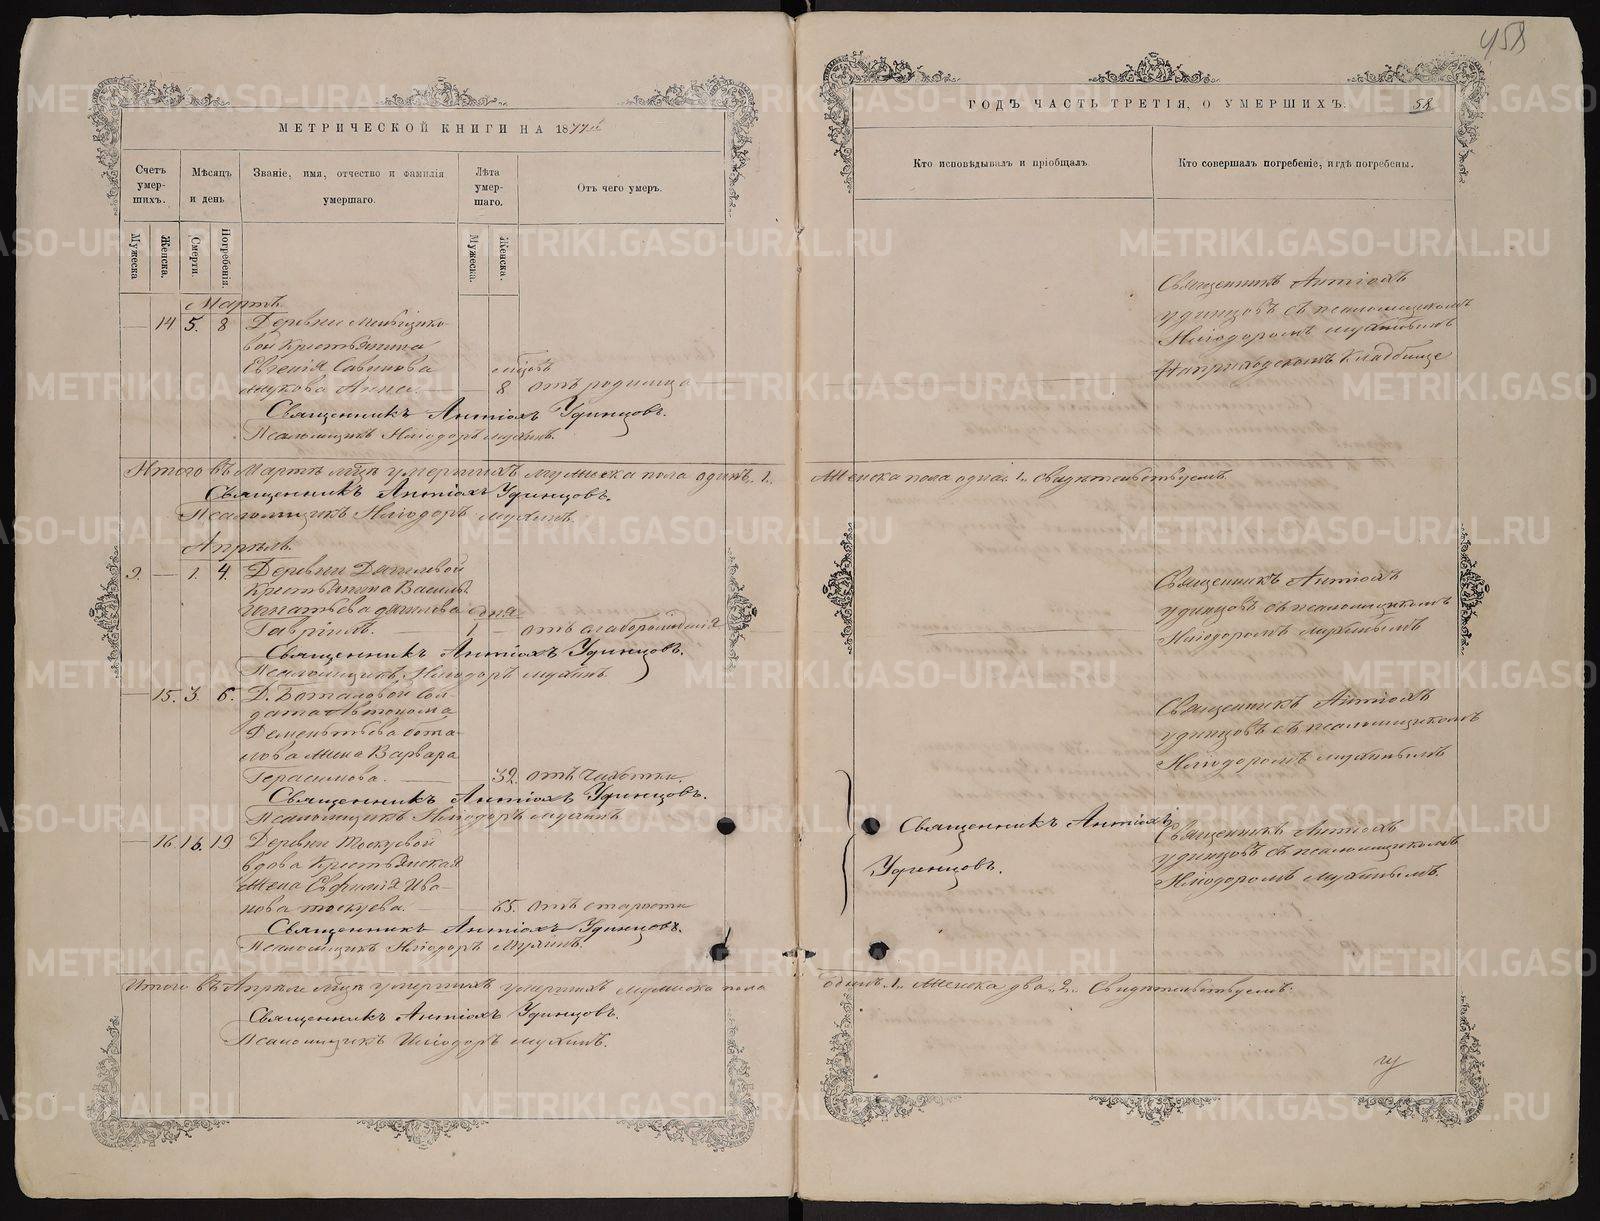 458
МЕТРИЧЕСКОЙ КНИГИ НА 1877й
Счетъ умер-шихъ.
Мѣсяцъ и день
Званіе, имя, отчество и фамилія умершаго.
Лѣта умер-шаго.
Отъ чего умеръ.
Мужеска
Женска.
Смерти.
Погребенія.
Мужеска.
Женска.
Мартъ
14 5. 8 Деревни
вой Крестьянина
Евгенія Савинова мѣсяцовъ
Анна. — 8 отъ родимца
Священникъ Антіохъ Удинцовъ.
Псаломщикъ Иліодоръ Мухинъ.
Итого въ Мартѣ мѣсяцѣ умершихъ мужеска пола одинъ 1.
Священникъ Антіохъ Удинцовъ.
Псаломщикъ Иліодоръ Мухинъ.
Апрѣль.
9. — 1. 4. Деревни Даниловой
Крестьянина Василья
Игнатьева Данилова дня
Гавріилъ. — 1 — отъ слаборожденія
Священникъ Антіохъ Удинцовъ.
Псаломщикъ Иліодоръ Мухинъ.
— 15. 3. 6. Д. Боталовой Сол-
дата Автонома
Дементьева Бота-
лова жена Варвара
Герасимова. — 32. отъ чахотки.
Священникъ Антіохъ Удинцовъ.
Псаломщикъ Иліодоръ Мухинъ
— 16. 16. 19 Деревни Москуевой
вдова Крестьянская
жена Евфимія Ива-
нова — 65. отъ старости
Священникъ Антіохъ Удинцовъ.
Псаломщикъ Иліодоръ Мухинъ.
Итого въ Апрѣлѣ мѣсяцѣ умершихъ умершихъ мужеска пола
Священникъ Антіохъ Удинцовъ.
Псаломщикъ Иліодоръ Мухинъ.
ГОДЪ ЧАСТЬ ТРЕТІЯ, О УМЕРШИХЪ.
58
Кто исповѣдывалъ и пріобщалъ.
Кто совершалъ погребеніе, и гдѣ погребены.
Священникъ Антіохъ
Удинцовъ съ псаломщикомъ
Иліодоромъ Мухинымъ
На приходскомъ кладбищѣ
Женска пола одна 1. Свидѣтельствуемъ.
Священникъ Антіохъ
Удинцовъ съ псаломщикомъ
Иліодоромъ Мухинымъ
Священникъ Антіохъ
Удинцовъ съ псаломщикомъ
Иліодоромъ Мухинымъ
Священникъ Антіохъ
Удинцовъ.
Священникъ Антіохъ
Удинцовъ съ псаломщикомъ
Иліодоромъ Мухинымъ.
одинъ 1. Женска два 2. Свидѣтельствуемъ.
METRIKI.GASO-URAL.RU